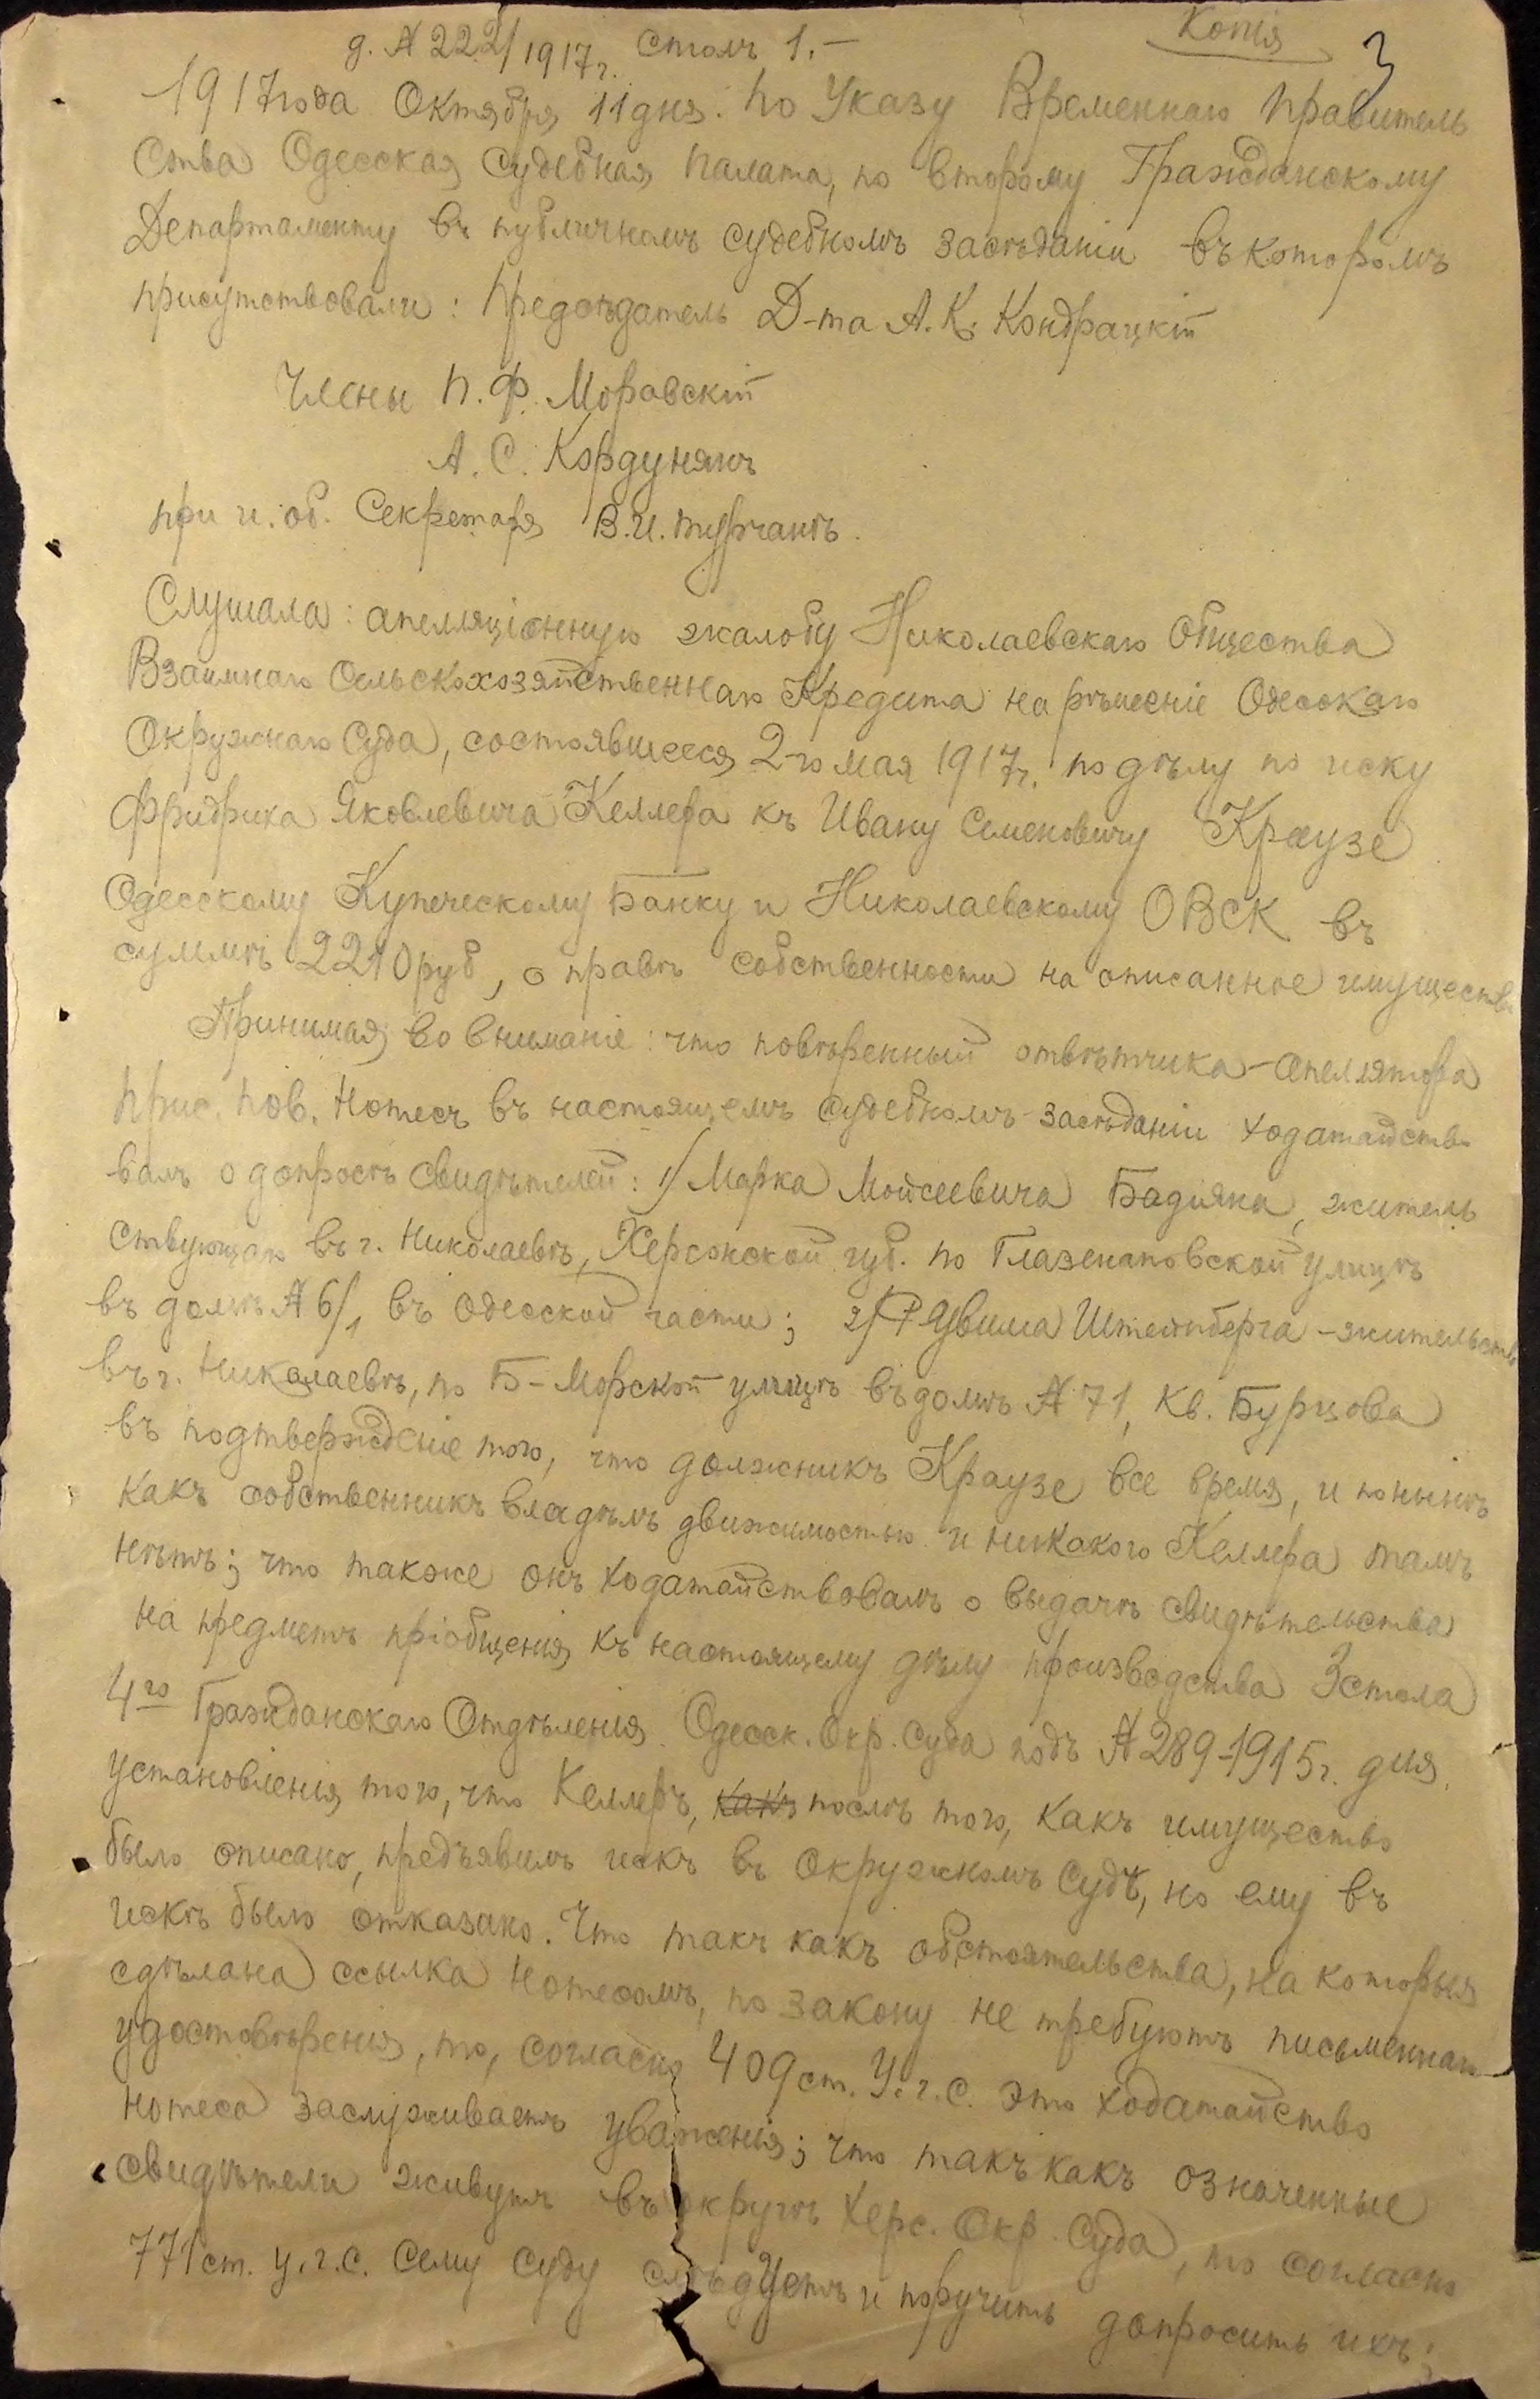 Копія
3
д. № 222/1917г. Столъ 1.—
1917года Октября 11 дня. По Указу Временнаго Правитель
ства Одесская Судебная Палата, по второму Гражданскому
Департаменту въ публичномъ судебномъ засѣданіи въ которомъ
присутствовали: Предсѣдатель Д-та А. К. Кондрацкій
Члены П. Ф. Моравскій
А. С. Кордунянъ
при и. об. Секретаря В. И.
Слушала: апелляціонную жалобу Николаевскаго Общества
Взаимнаго Сельскохозяйственнаго Кредита на рѣшеніе Одесскаго
Окружнаго Суда, состоявшееся 2-го мая 1917г. по дѣлу по иску
Фридриха Яковлевича Келлера къ Ивану Семеновичу Краузе
Одесскому Купеческому Банку и Николаевскому ОВСК въ
суммѣ 2210 руб, о правѣ собственности на описанное имущество
Принимая во вниманіе: что повѣренный отвѣтчика-апеллятора
прис. пов. Нотесъ въ настоящемъ судебномъ засѣданіи ходатайство
валъ о допросѣ свидѣтелей: 1/ Марка Мойсеевича Бадияна, житель
ствующаго въ г. Николаевѣ, Херсонской губ. по Глазенаповской улицѣ
въ домѣ № 6/1 въ Одесской части; 2/ Рувима Штейнберга - жительство
въ г. Николаевѣ, по Б-Морской улицѣ въ домѣ № 71, кв. Бурцова
въ подтвержденіе того, что должникъ Краузе все время, и понынѣ
какъ собственникъ владѣлъ движимостью и никакого Келлера тамъ
нѣтъ; что также онъ ходатайствовалъ о выдачѣ свидѣтельства
на предметъ пріобщенія къ настоящему дѣлу производства 3 стола
4го Гражданскаго Отдѣленія Одесск. Окр. Суда подъ № 289-1915г. для
установленія того, что Келлеръ, какъ послѣ того, какъ имущество
было описано, предъявилъ искъ въ Окружномъ Судѣ, но ему въ
искѣ было отказано. Что такъ какъ обстоятельства, на которыя
сдѣлана ссылка Нотесомъ, по закону не требуютъ письменнаго
удостовѣренія, то, согласно 409 ст. У. г. с. это ходатайство
Нотеса заслуживаетъ уваженія; что такъ какъ означенные
свидѣтели живутъ въ округѣ Херс. Окр. Суда, то согласно
771 ст. у. г. с. сему суду слѣдуетъ и поручить допросить ихъ;